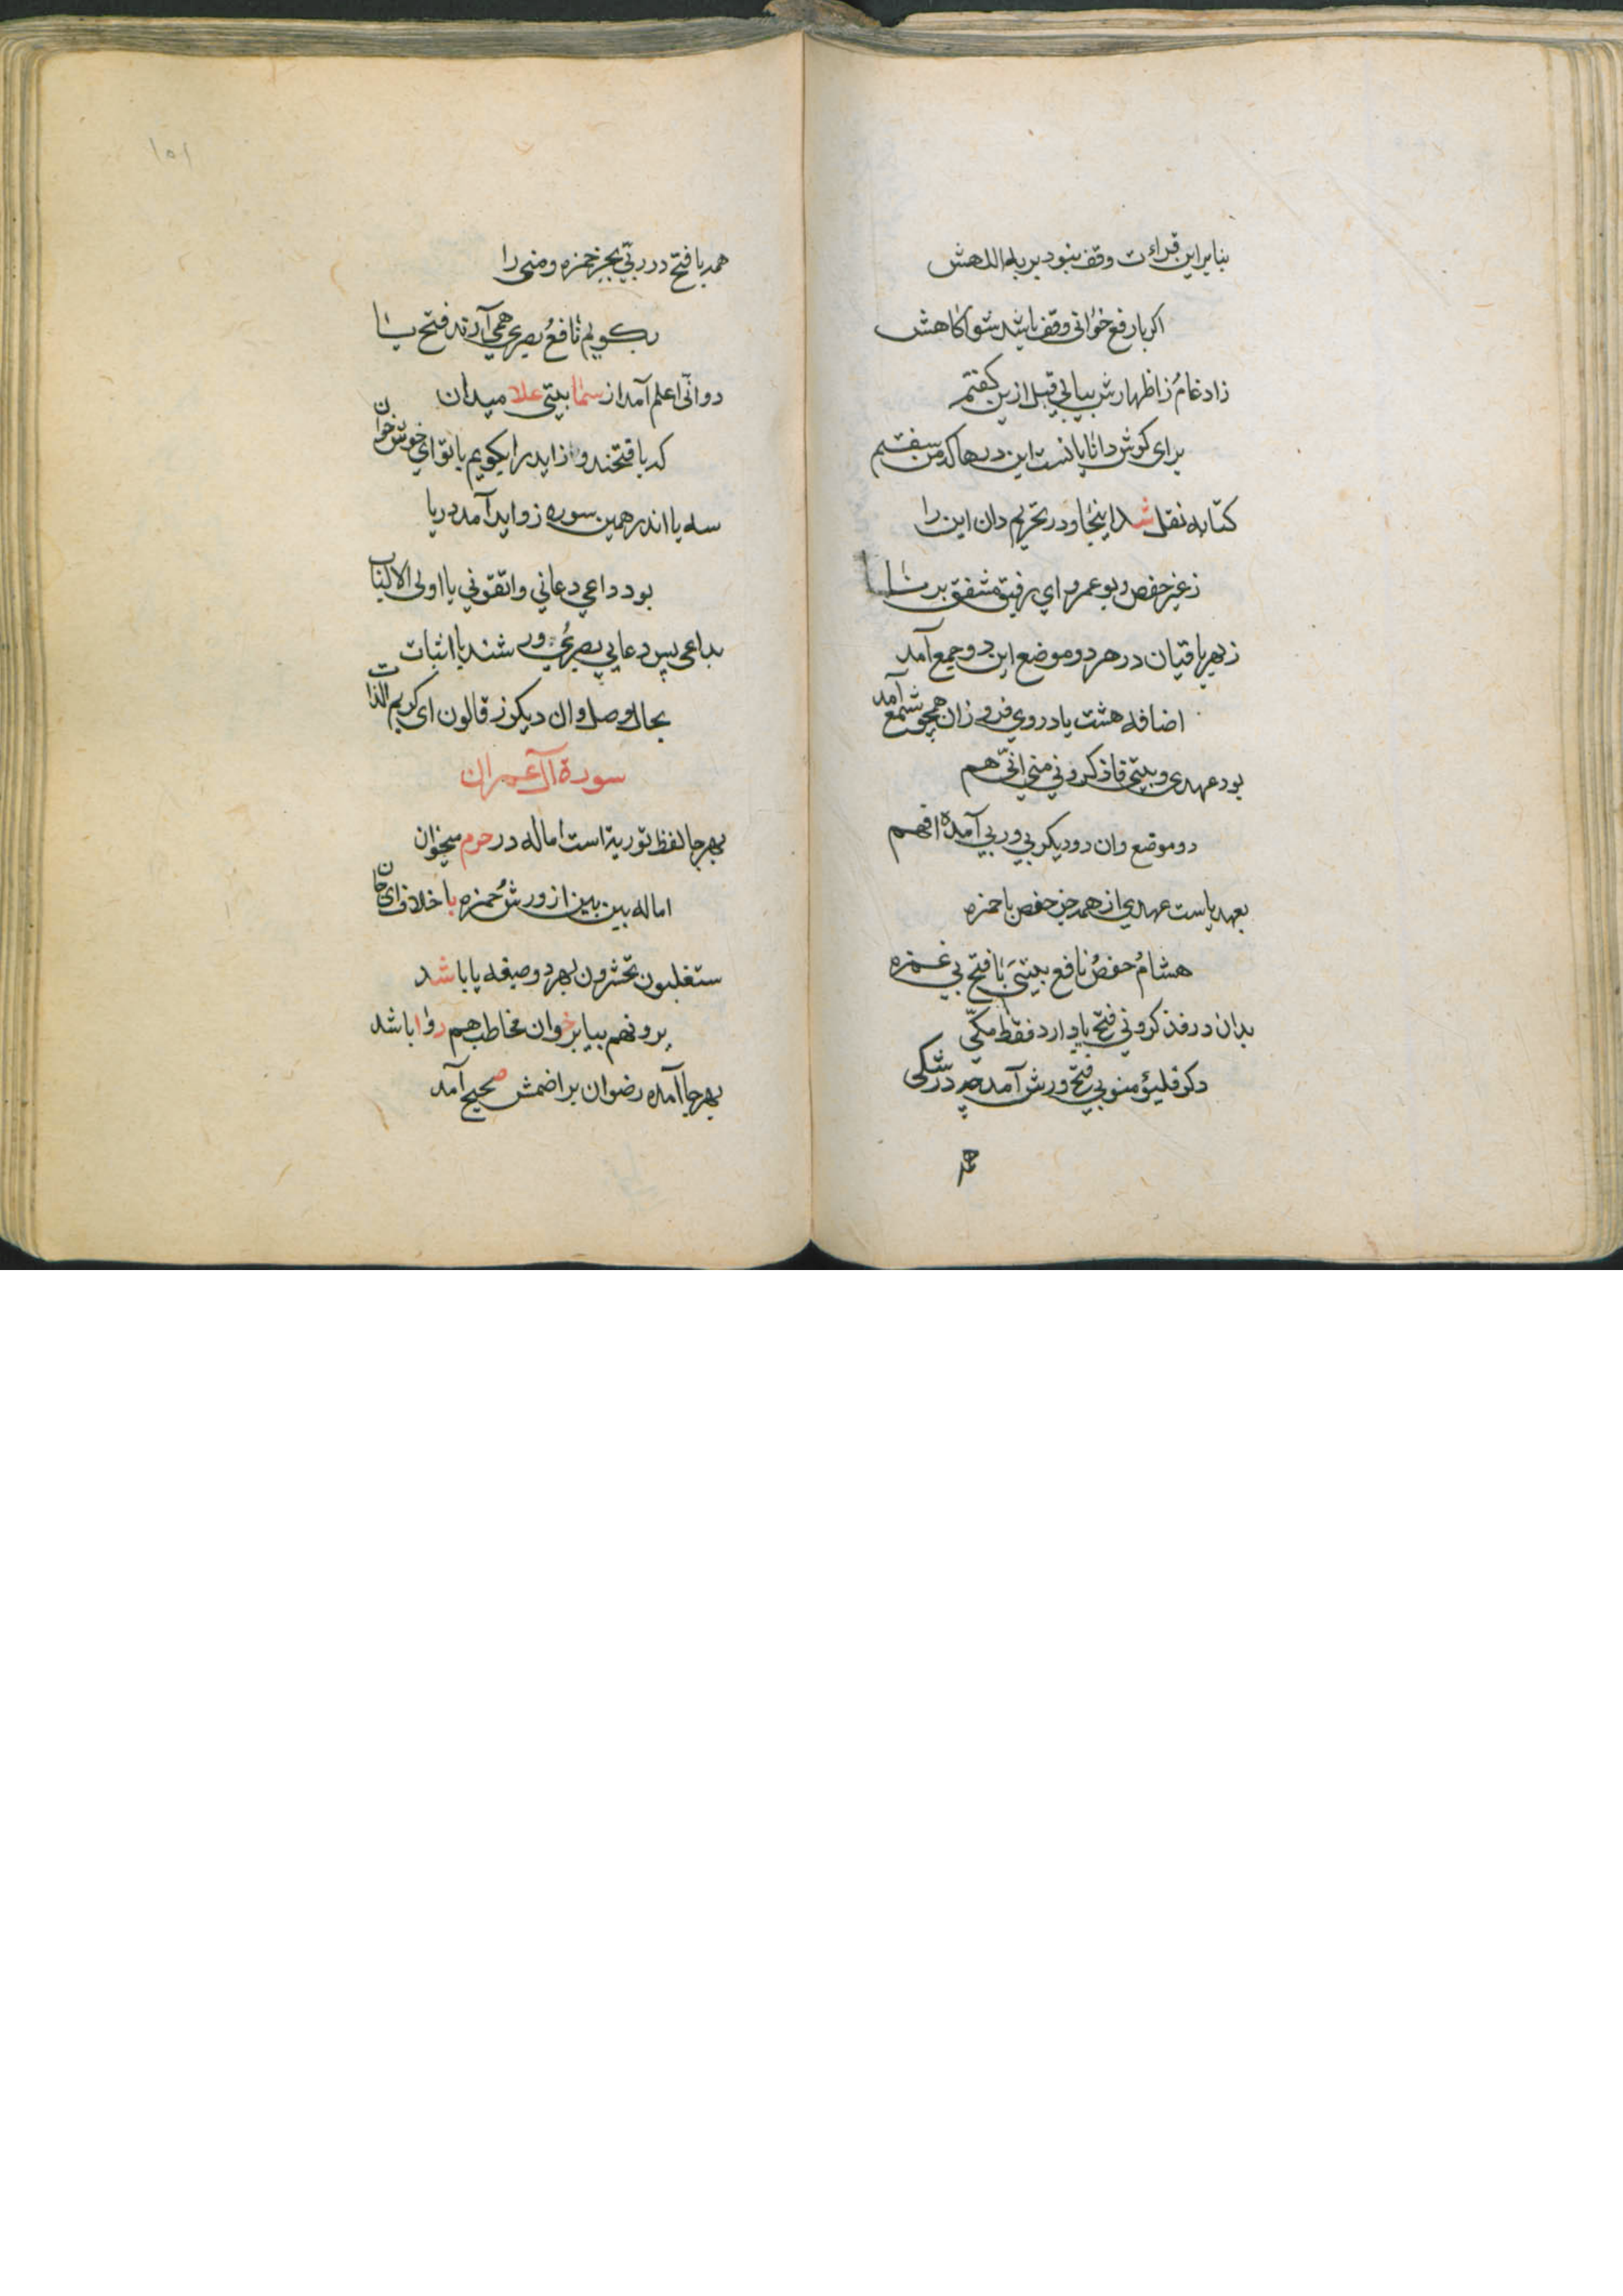 بنابراین قراءت وقف نبود بر به اللهش
اکر با رفع خوانی وقف باشد شو آکاهش
ز ادغام ز اظهارش بیابی قبل ازین کفتم
برای کوش دانایانست این درها که من سفتم
کتابه نقل شد اینجا و در تحریم دان این را
ز غیر حفص و بو عمرو ای رفیق مشفق برنا
ز بهر باقیان در هر دو موضع این دو جمع آمد
اضافه هشت یا در وی فروزان همچو شمع آمد
بود عهدی و بیتی فاذکرونی منی انی هم
دو موضع وان دو دیکر بی و ربی آمده افهم
بعهد یاست عهدی از همه جز حفص با حمزه
هشام حفص نافع بیتی با فتح بی غمزه
بدان در فذکرونی فتح یا دارد فقط مکی
دکر فلیؤمنو بی فتح ورش آمد چه در شکی
همه
۱۵۱
همه با فتح در ربی بجز حمزه و منی را
بکویم نافع بصری همی آرند فتح یا
دو انی اعلم آمد از سما بیتی علا میدان
که با فتحند و زاید را بکویم با تو ای خوش خوان
سه یا اندر همین سوره زواید آمد دریا
بود داعی دعانی واتقونی یا اولی الالباب
بداعی پس دعانی بصری و ورشند با اثبات
بحال وصل وان دیکر ز قالون ای کریم الذات
سورة آل عمران
بهر جا لفظ توریة است اماله در حرم میخوان
اماله بین بین از ورش حمزه با خلاف ای جان
ستغلبون تحشرون بهر دو صیغه یا باشد
یرونهم بیا برخوان مخاطب هم روا باشد
بهر جا آمده رضوان برا ضمش صحیح آمد